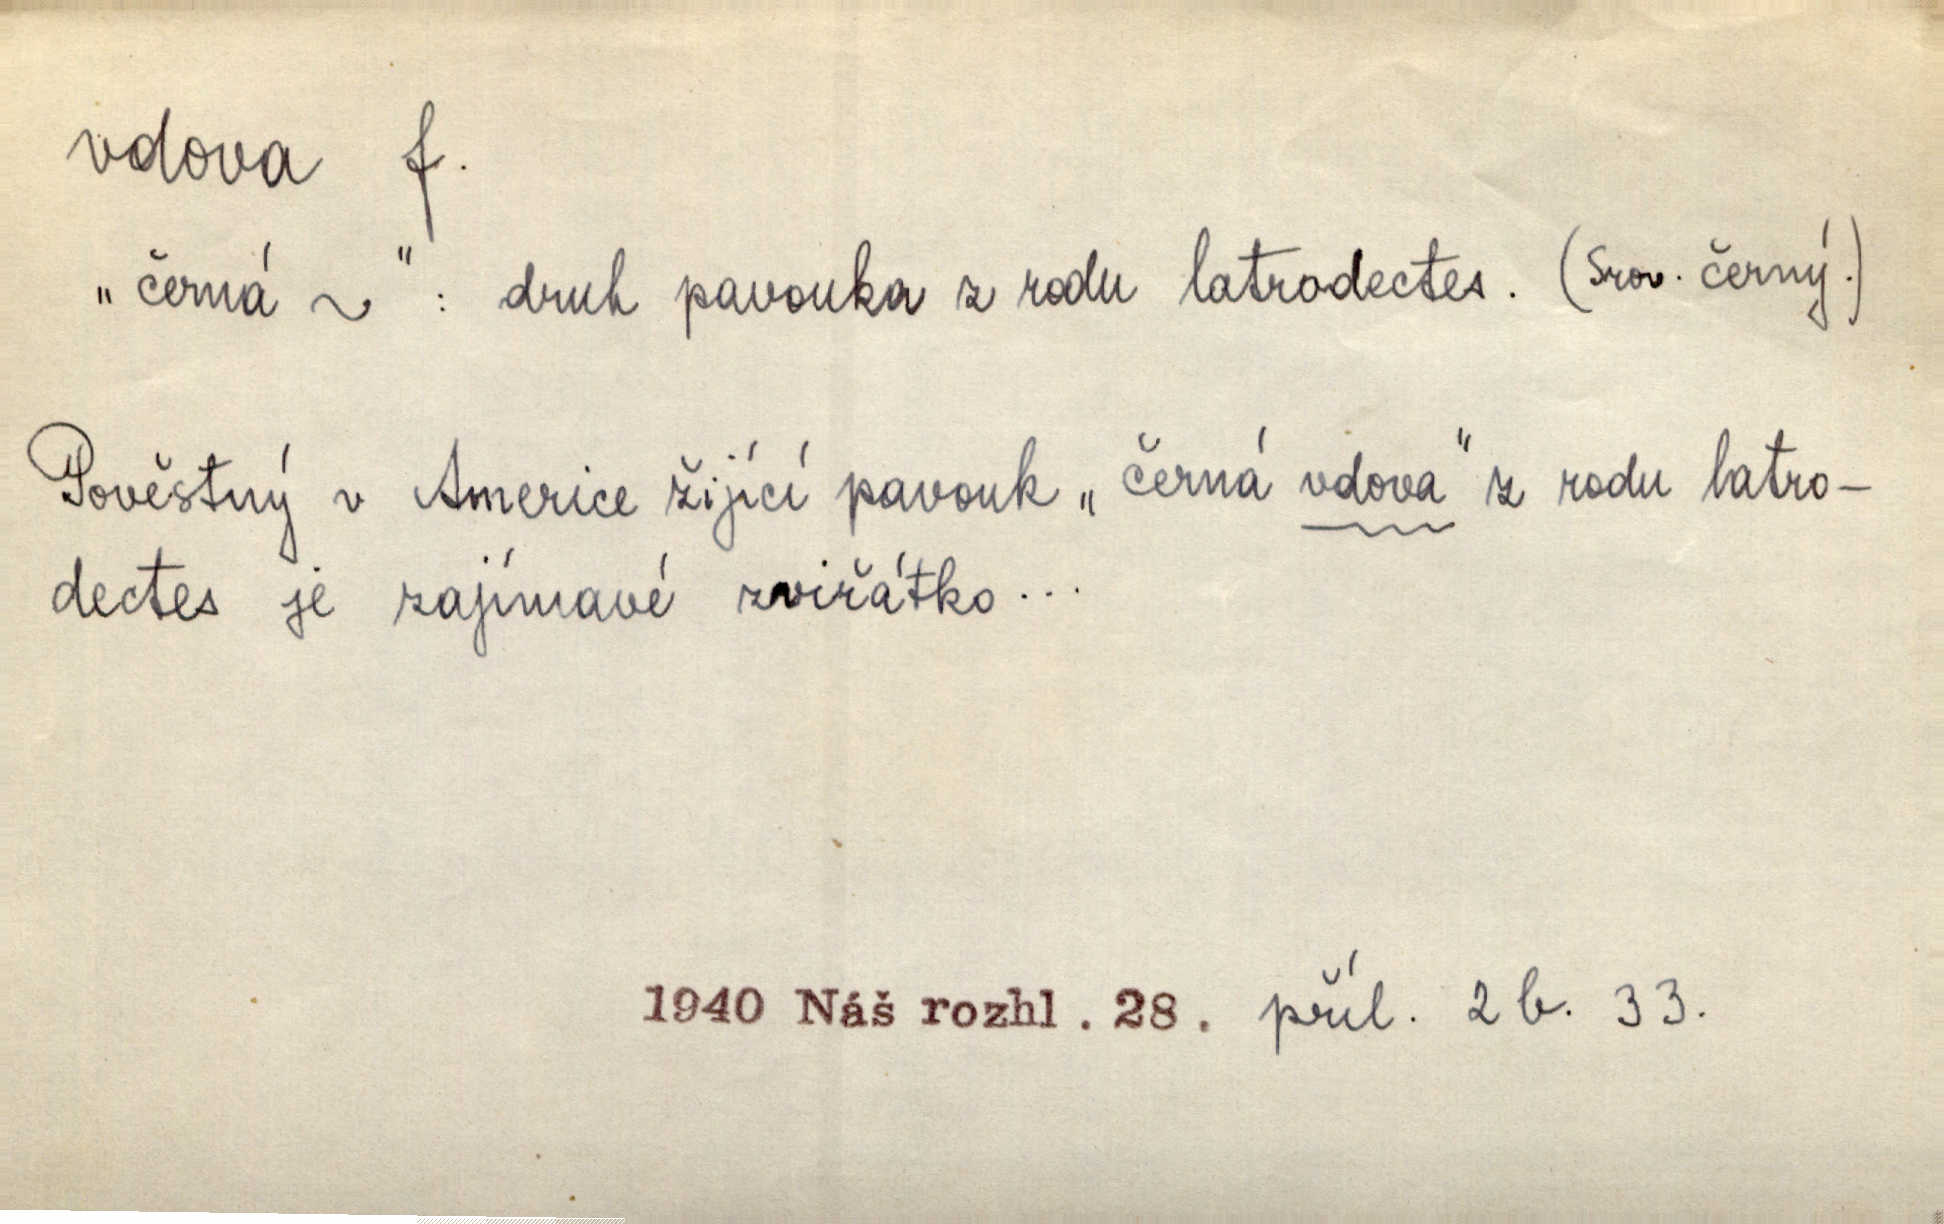 vdova f.
„černá ~": druh pavouka z rodu latrodectes. (Srov. černý.)
Pověstný v Americe žijící pavouk „černá vdova" z rodu latro-
dectes je zajímavé zviřátko...
1940 Náš rozhl. 28. příl. 2 b. 33.